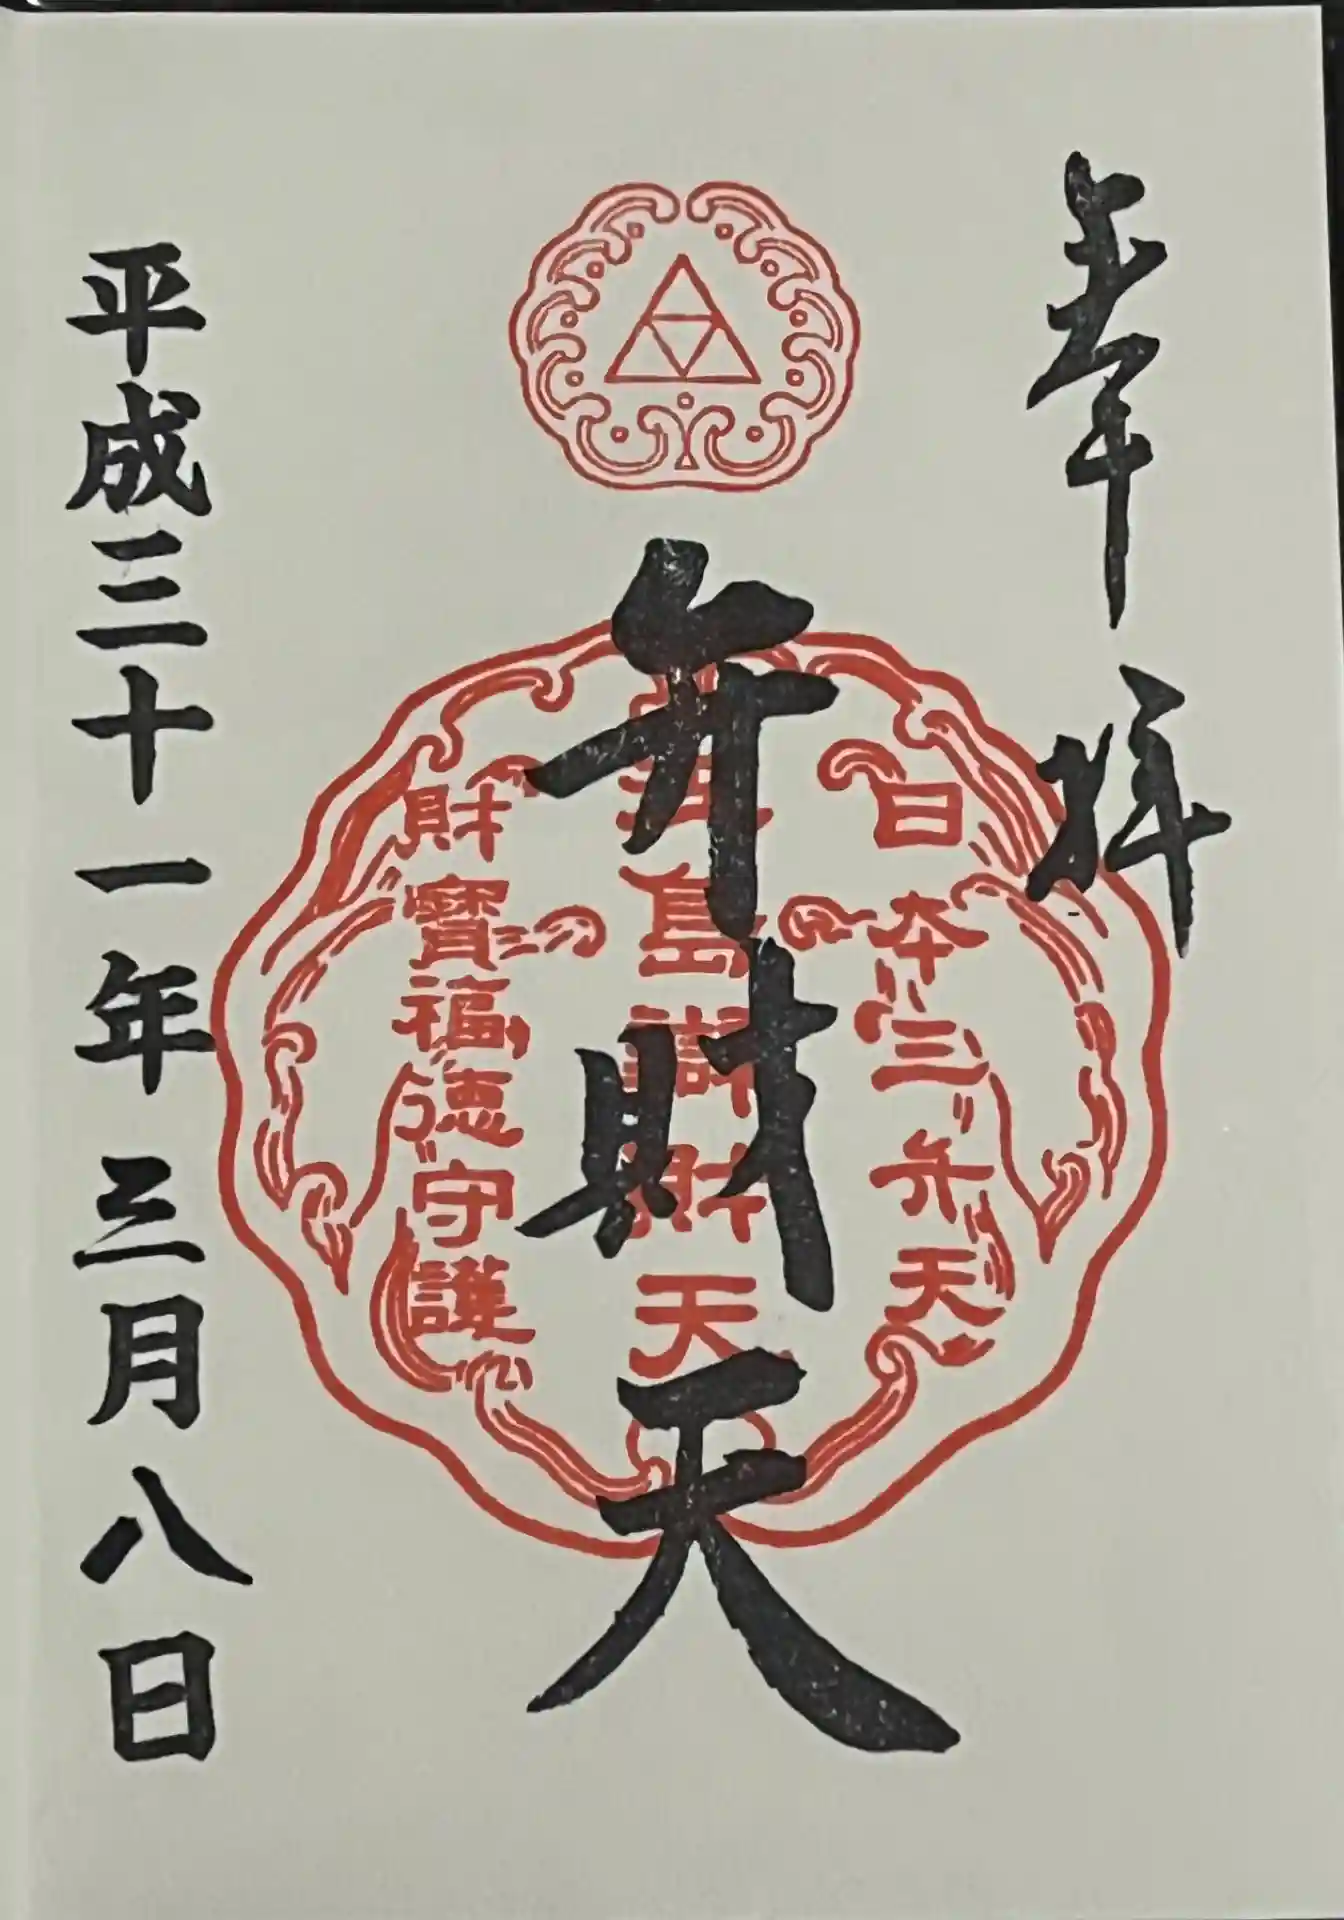 奉拝
日本三弁天
弁財天
島辯財天
財寶福徳守護
平成三十一年三月八日